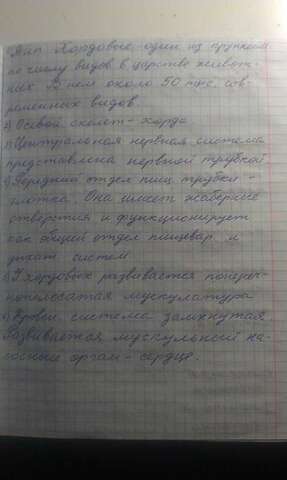 Тип Хордовые один из крупней
по числу видов в царстве живот-
ных. В нем около 50 тыс. сов-
ременных видов.
Осевой скелет - хорда
Центральная нервная система
представлена нервной трубкой.
Передний отдел пищ. трубки -
глотка. Она имеет жаберные
отверстия и функционирует
как общий отдел пищевар. и
дыхат систем
У хордовых развивается попереч-
нополосатая мускулатура
Кровен. система замкнутая
Развивается мускульный на-
сосные орган - сердце.